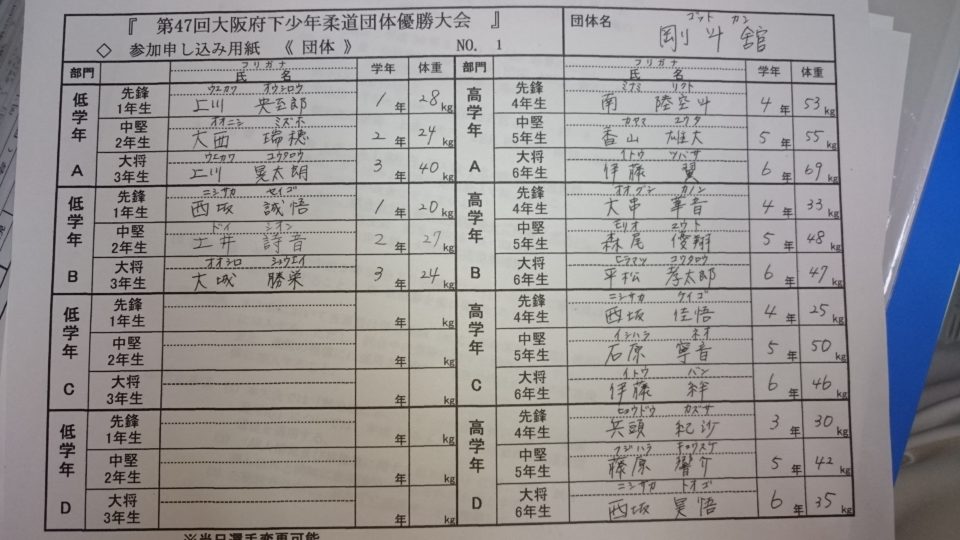 『 第47回大阪府下少年柔道団体優勝大会 』
◇ 参加申し込み用紙 《 団体 》 NO. 1
団体名 ゴット カン
剛斗舘
部門 フリガナ 氏名 学年 体重
低学年 A
先鋒 1年生 ウエカワ オウシロウ 上川 央至郎 1年 28kg
中堅 2年生 オオニシ ミズホ 大西 瑞穂 2年 24kg
大将 3年生 ウエカワ コウタロウ 上川 晃太朗 3年 40kg
低学年 B
先鋒 1年生 ニシサカ セイゴ 西坂 誠悟 1年 20kg
中堅 2年生 ドイ シオン 土井 詩音 2年 27kg
大将 3年生 オオシロ ショウエイ 大城 勝栄 3年 24kg
低学年 C
先鋒 1年生 年 kg
中堅 2年生 年 kg
大将 3年生 年 kg
低学年 D
先鋒 1年生 年 kg
中堅 2年生 年 kg
大将 3年生 年 kg
部門 フリガナ 氏名 学年 体重
高学年 A
先鋒 4年生 ミナミ リクト 南 陸空斗 4年 53kg
中堅 5年生 カヤマ ユウタ 香山 雄大 5年 55kg
大将 6年生 イトウ ツバサ 伊藤 翼 6年 69kg
高学年 B
先鋒 4年生 オオグシ カノン 大串 華音 4年 33kg
中堅 5年生 モリオ ユウト 森尾 優翔 5年 48kg
大将 6年生 ヒラマツ コウタロウ 平松 孝太郎 6年 47kg
高学年 C
先鋒 4年生 ニシサカ ケイゴ 西坂 佳悟 4年 25kg
中堅 5年生 イシハラ ネオ 石原 寧音 5年 50kg
大将 6年生 イトウ バン 伊藤 絆 6年 46kg
高学年 D
先鋒 4年生 ヒョウドウ カズサ 兵頭 紀沙 3年 30kg
中堅 5年生 フジハラ キョウスケ 藤原 響介 5年 42kg
大将 6年生 ニシサカ トオゴ 西坂 昊悟 6年 35kg
※当日選手変更可能